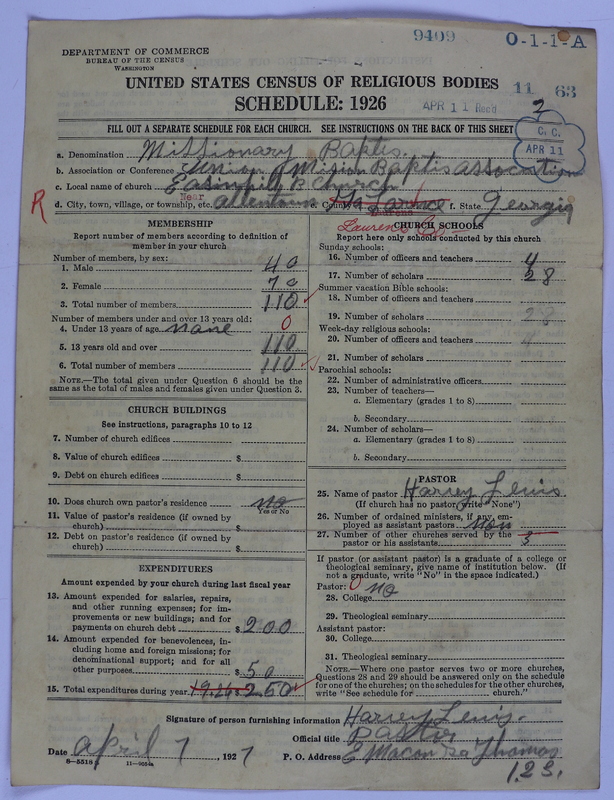 9409 O-1-1-A
DEPARTMENT OF COMMERCE
BUREAU OF THE CENSUS
WASHINGTON
UNITED STATES CENSUS OF RELIGIOUS BODIES
SCHEDULE: 1926
APR 11 Rec'd
11 63
FILL OUT A SEPARATE SCHEDULE FOR EACH CHURCH. SEE INSTRUCTIONS ON THE BACK OF THIS SHEET
C. C.
APR 11
a. Denomination Missionary Baptis
b. Association or Conference Union Mission Baptis Association
c. Local name of church B Church
R
d. City, town, village, or township, etc. Near Allentown e. County f. State Georgia
Laurens Co
MEMBERSHIP
Report number of members according to definition of
member in your church
Number of members, by sex:
1. Male 40
2. Female 70
3. Total number of members 110
Number of members under and over 13 years old:
4. Under 13 years of age none 0
5. 13 years old and over 110
6. Total number of members 110
NOTE.—The total given under Question 6 should be
same as the total of males and females given under Question 3.
CHURCH BUILDINGS
See instructions, paragraphs 10 to 12
7. Number of church edifices
8. Value of church edifices $
9. Debt on church edifices $
10. Does church own pastor's residence no
Yes or No
11. Value of pastor's residence (if owned by
church) $
12. Debt on pastor's residence (if owned by
church) $
EXPENDITURES
Amount expended by your church during last fiscal year
13. Amount expended for salaries, repairs,
and other running expenses; for im-
provements or new buildings; and for
payments on church debt $ 200
14. Amount expended for benevolences, in-
cluding home and foreign missions; for
denominational support; and for all
other purposes $ 50
15. Total expenditures during year 250
CHURCH SCHOOLS
Report here only schools conducted by this church
Sunday schools:
16. Number of officers and teachers 4
17. Number of scholars 28
Summer vacation Bible schools:
18. Number of officers and teachers
19. Number of scholars 28
Week-day religious schools:
20. Number of officers and teachers 4
21. Number of scholars
Parochial schools:
22. Number of administrative officers
23. Number of teachers—
a. Elementary (grades 1 to 8)
b. Secondary
24. Number of scholars—
a. Elementary (grades 1 to 8)
b. Secondary
PASTOR
25. Name of pastor Harvey Lewis
(If church has no pastor, write "None")
26. Number of ordained ministers, if any, em-
ployed as assistant pastors
27. Number of other churches served by the
pastor or his assistants 3
If pastor (or assistant pastor) is a graduate of a college or
theological seminary, give name of institution below. (If
not a graduate, write "No" in the space indicated.)
Pastor: 0 no
28. College
29. Theological seminary
Assistant pastor:
30. College
31. Theological seminary
NOTE.—Where one pastor serves two or more churches,
Questions 28 and 29 should be answered only on the schedule
for one of the churches; on the schedules for the other churches,
write "See schedule for church."
Signature of person furnishing information Harvey Lewis.
Official title Pastor
Date April 7, 1927 P. O. Address E Macon Ga Thomas
8—5518 11—9554 123.